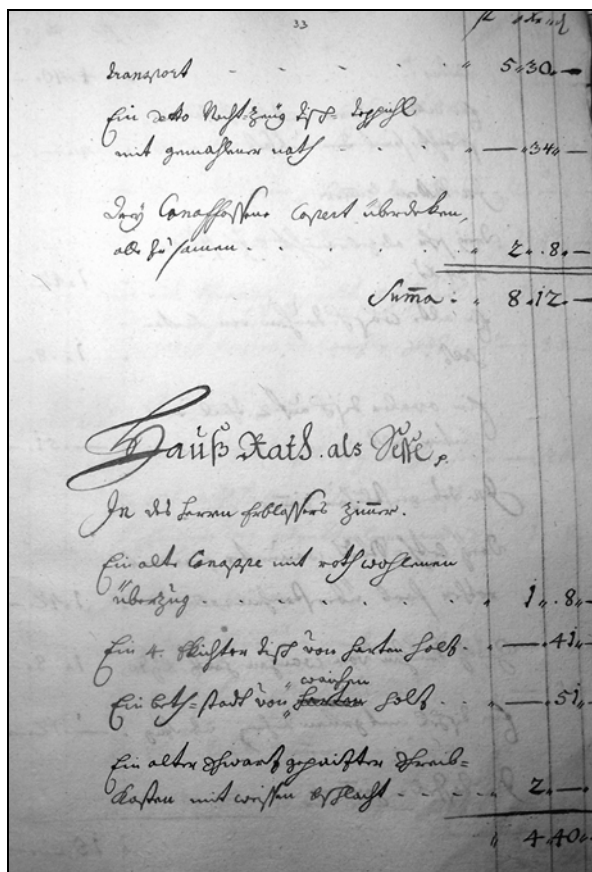 33
fl x d
transport - - - - " 5 " 30 " —
Ein detto Nacht-Zeug disch-deppichl
mit gemahlener nath . . . " — " 34 " —
Drey überdeken,
alle zusamen . . . . . " 2 " 8 " —
Suma . " 8 " 12 " —
Hauß Rath als
In des herrn Erblassers Zimmer.
Ein alte Canappe mit roth wohlenen
überzug . . . . . . . " 1 " 8 " —
Ein 4. Ekichter disch von harten holz . — " 41 " —
waichen
Ein beth-stadt von harten holz . . — " 51 " —
Ein alter schwarz gepaizter schreib-
Kasten mit weissen bschlacht . . . . " 2 " — " —
" 4 " 40 " —